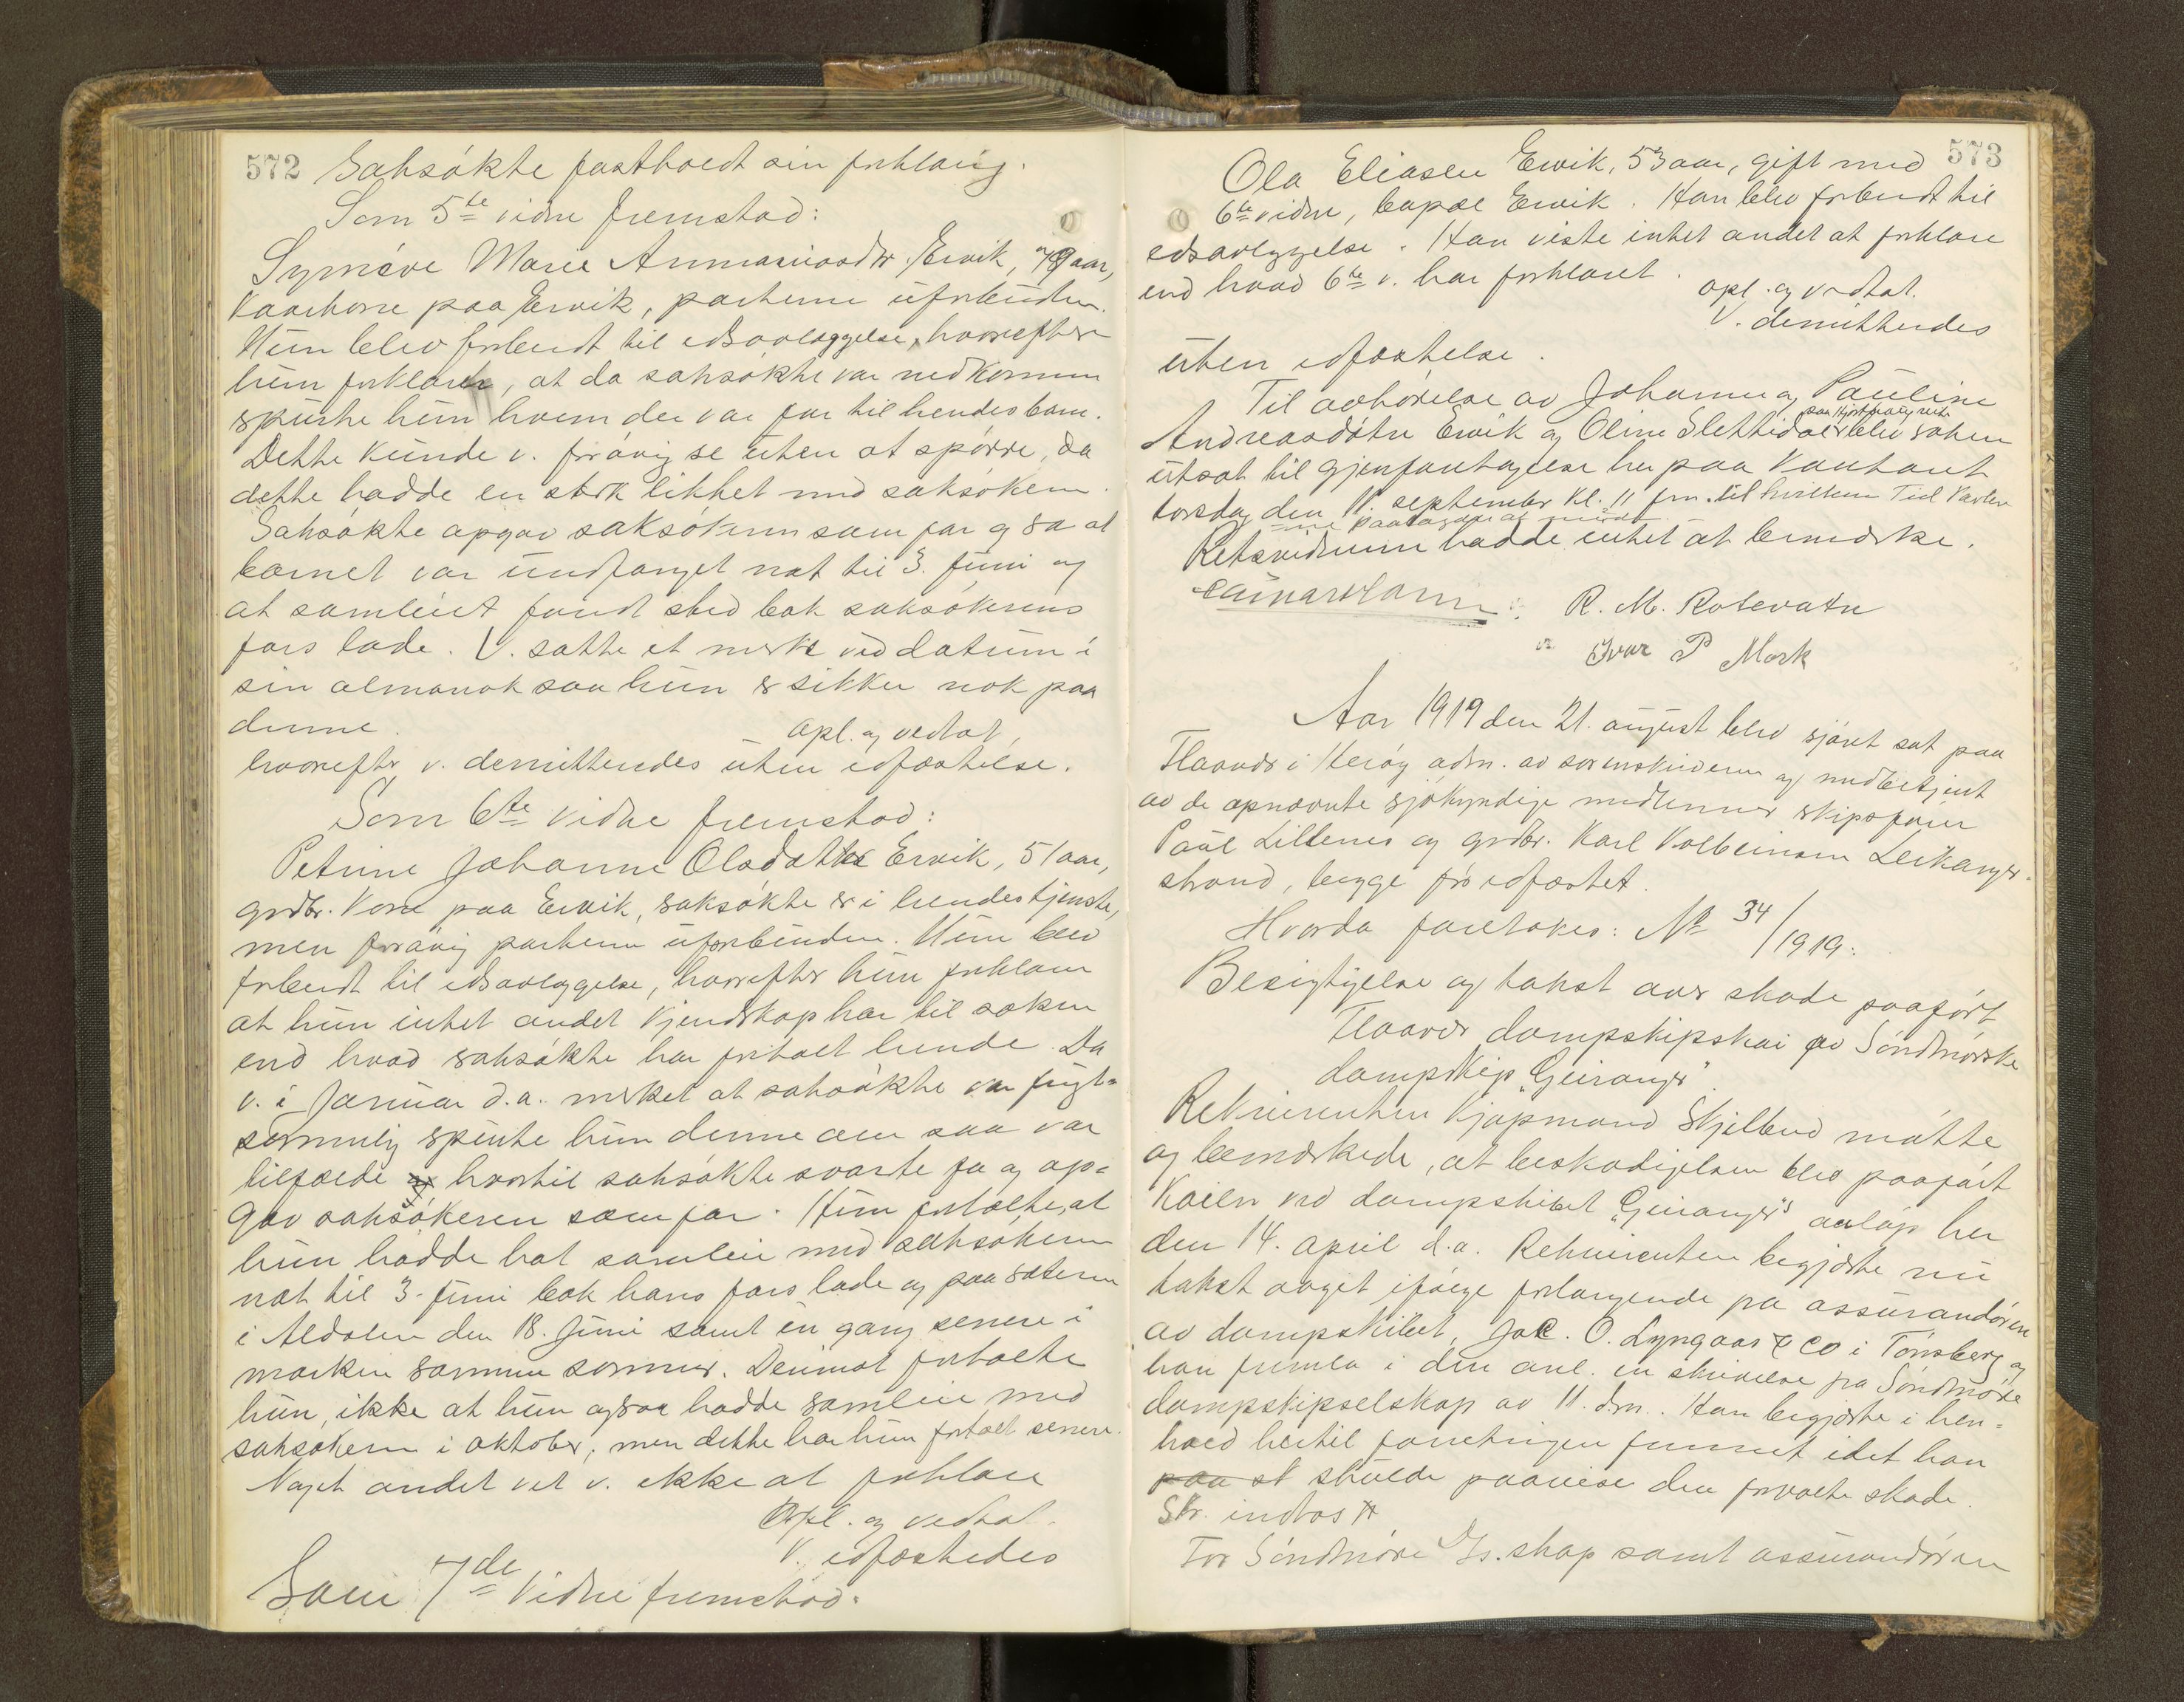 572
Saksökte fastholdt sin forklaring.
Som 5te vidne fremstod:
Synnöve Marie Annaniasdtr. Ervik, 79 aar,
kaarkone paa Ervik, parterne uforbunden.
Hun blev forberedt til edsavlæggelse, hvorefter
hun forklarer, at da saksökte var nedkommen
spurte hun hvem der var far til hendes barn.
Dette kunde v. forövrig se uten at spörre, da
dette hadde en sterk likhet med saksökeren.
Saksökte opgav saksökeren som far og sa at
barnet var undfanget nat til 3. juni og
at samleiet fandt sted bak saksökerens
fars lade. V. satte et merke ved datum i
sin almanak saa hun er sikker nok paa
denne.
opl. og vedtat,
hvorefter v. demitteredes uten edfæstelse.
Som 6te vidne fremstod:
Petrine Johanne Olsdatter Ervik, 51 aar,
grdbr. kone paa Ervik, saksökte er i hendes tjeneste,
men forövrig parterne uforbunden. Hun blev
forberedt til edsavlæggelse, hvorefter hun forklarer
at hun intet andet kjendskap har til saken
end hvad saksökte har fortalt hende. Da
v. i Januar d.a. merket at saksökte var frugt-
sommelig spurte hun denne om saa var
tilfælde hvortil saksökte svarte ja og op-
gav saksökeren som far. Hun fortalte, at
hun hadde hat samleie med saksökeren
nat til 3. juni bak hans fars lade og paa sæteren
i Aldalen den 18. juni samt en gang senere i
marken samme sommer. Derimot fortalte
hun, ikke at hun ogsaa hadde samleie med
saksökeren i oktober; men dette har hun fortalt senere.
Noget andet vet v. ikke at forklare
Opl. og vedtat.
V. edfæstedes
Som 7de vidne fremstod:
573
Ola Eliassen Ervik, 53 aar, gift med
6te vidne, bopæl Ervik. Han blev forberedt til
edsavlæggelse. Han viste intet andet at forklare
end hvad 6te v. har forklaret.
opl. og vedtat.
V. demitteredes
uten edfæstelse.
Til avhörelse av Johanne og Pauline
Andreasdötre Ervik og Oline Slettedal blev saken
utsat til gjenforetagelse her paa kontoret
torsdag den 11. september kl. 11 fm. til hvilken Tid
Retsvidnerne hadde intet at bemerke.
R. M. Rotevatn
Ivar P Mork
Aar 1919 den 21. august blev sjöret sat paa
Flaavær i Heröy adm. av sorenskriveren og medbetjent
av de opnævnte sjökyndige medlemmer skipsförer
Paul Lillenes og grdbr. Karl Kolbeinsen Leikanger-
strand, begge för edfæstet.
Hvorda foretokes: № 34/1919:
Besigtigelse og takst over skade paafört
Flaavær dampskipskai av Söndmörske
dampskip "Geiranger".
Rekvirenten kjøpmand Skjelbred mötte
og bemerkede, at beskadigelsen blev paafört
kaien ved dampskibet "Geiranger"s anlöp her
den 14. april d.a. Rekvirenten begjærte nu
takst avget ifölge forlangende fra assurandören
av dampskibet, Jac. O. Lyngaas & Co i Tönsberg og
han fremla i den anl. en skrivelse fra Söndmöre
dampskipselskap av 11. dm. Han begjærte i hen-
hold hertil forretningen fremmet idet han
paa st skulde paavise den forvoldte skade.
Skr. indtas #
For Söndmöre Ds.skap samt assurandören